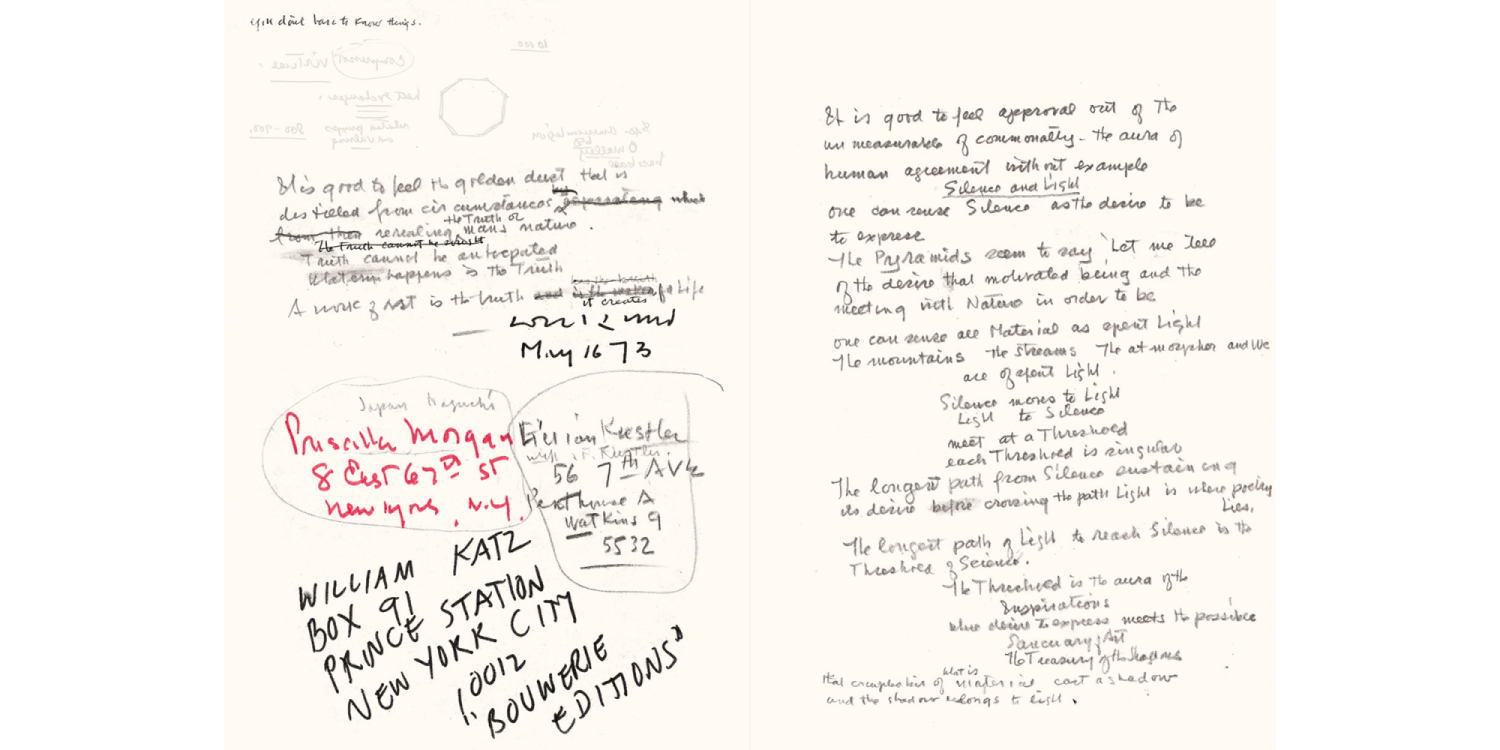 you don't have to know things.
It is good to feel the golden dust that is
distilled from circumstances which
the Truth of
from then revealing mans nature.
The Truth cannot be
Truth cannot be anticipated
Whatever happens is the Truth
A work of Art is the truth and is the maker of a Life
it creates
Louis I Kahn
May 16 73
Japan Noguchi
Priscilla Morgan
8 East 67th ST
New York, N.Y.
Lilian Kiesler
F. Kiesler.
56 7th AVE
Penthouse A
Watkins 9
5532
WILLIAM KATZ
BOX 91
PRINCE STATION
NEW YORK CITY
10012
"BOUWERIE
EDITIONS"
It is good to feel approval out of The
unmeasurable of commonality - the aura of
human agreement without example
Silence and Light
one can sense Silence as the desire to be
to express
The Pyramids seem to say, Let me Tell
of the desire that motivated being and the
meeting with Nature in order to be
one can sense all Material as spent Light
The mountains The streams The atmosphere and We
are of spent Light.
Silence moves to Light
Light to Silence
meet at a Threshold
each Threshold is singular
The longest path from Silence sustaining
its desire before crossing the path Light is where poetry
Lies.
The longest path of Light to reach Silence is the
Threshold of Science.
The Threshold is the aura of the
Inspirations
where desire to express meets the possible
Sanctuary of Art
The Treasury of the Shadows
what is
that of material cast a shadow
and the shadow belongs to light.